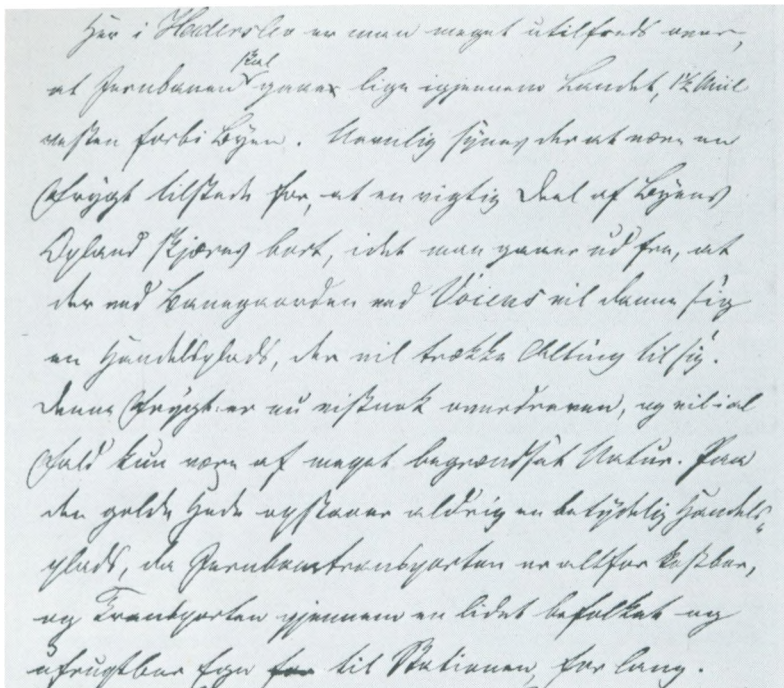 Her i Haderslev er man meget utilfreds over,
at Jernbanen skal gaae lige igjennem Landet, 1½ Miil
vesten forbi Byen. Navnlig synes der at være en
Frygt tilstede for, at en vigtig Deel af Byens
Opland skjæres bort, idet man gaaer ud fra, at
der ved Banegaarden ved Voiens vil danne sig
en Handelsplads, der vil trække Alting til sig.
Denne Frygt er nu vistnok overdreven, og vil i al
Fald kun være af meget begrændset Natur. Paa
den golde Hede opstaaer aldrig en betydelig Handels-
plads, da Jernbanetransporten er altfor kostbar,
og Transporten gjennem en lidet befolket og
ufrugtbar Egn til Stationen, for lang.